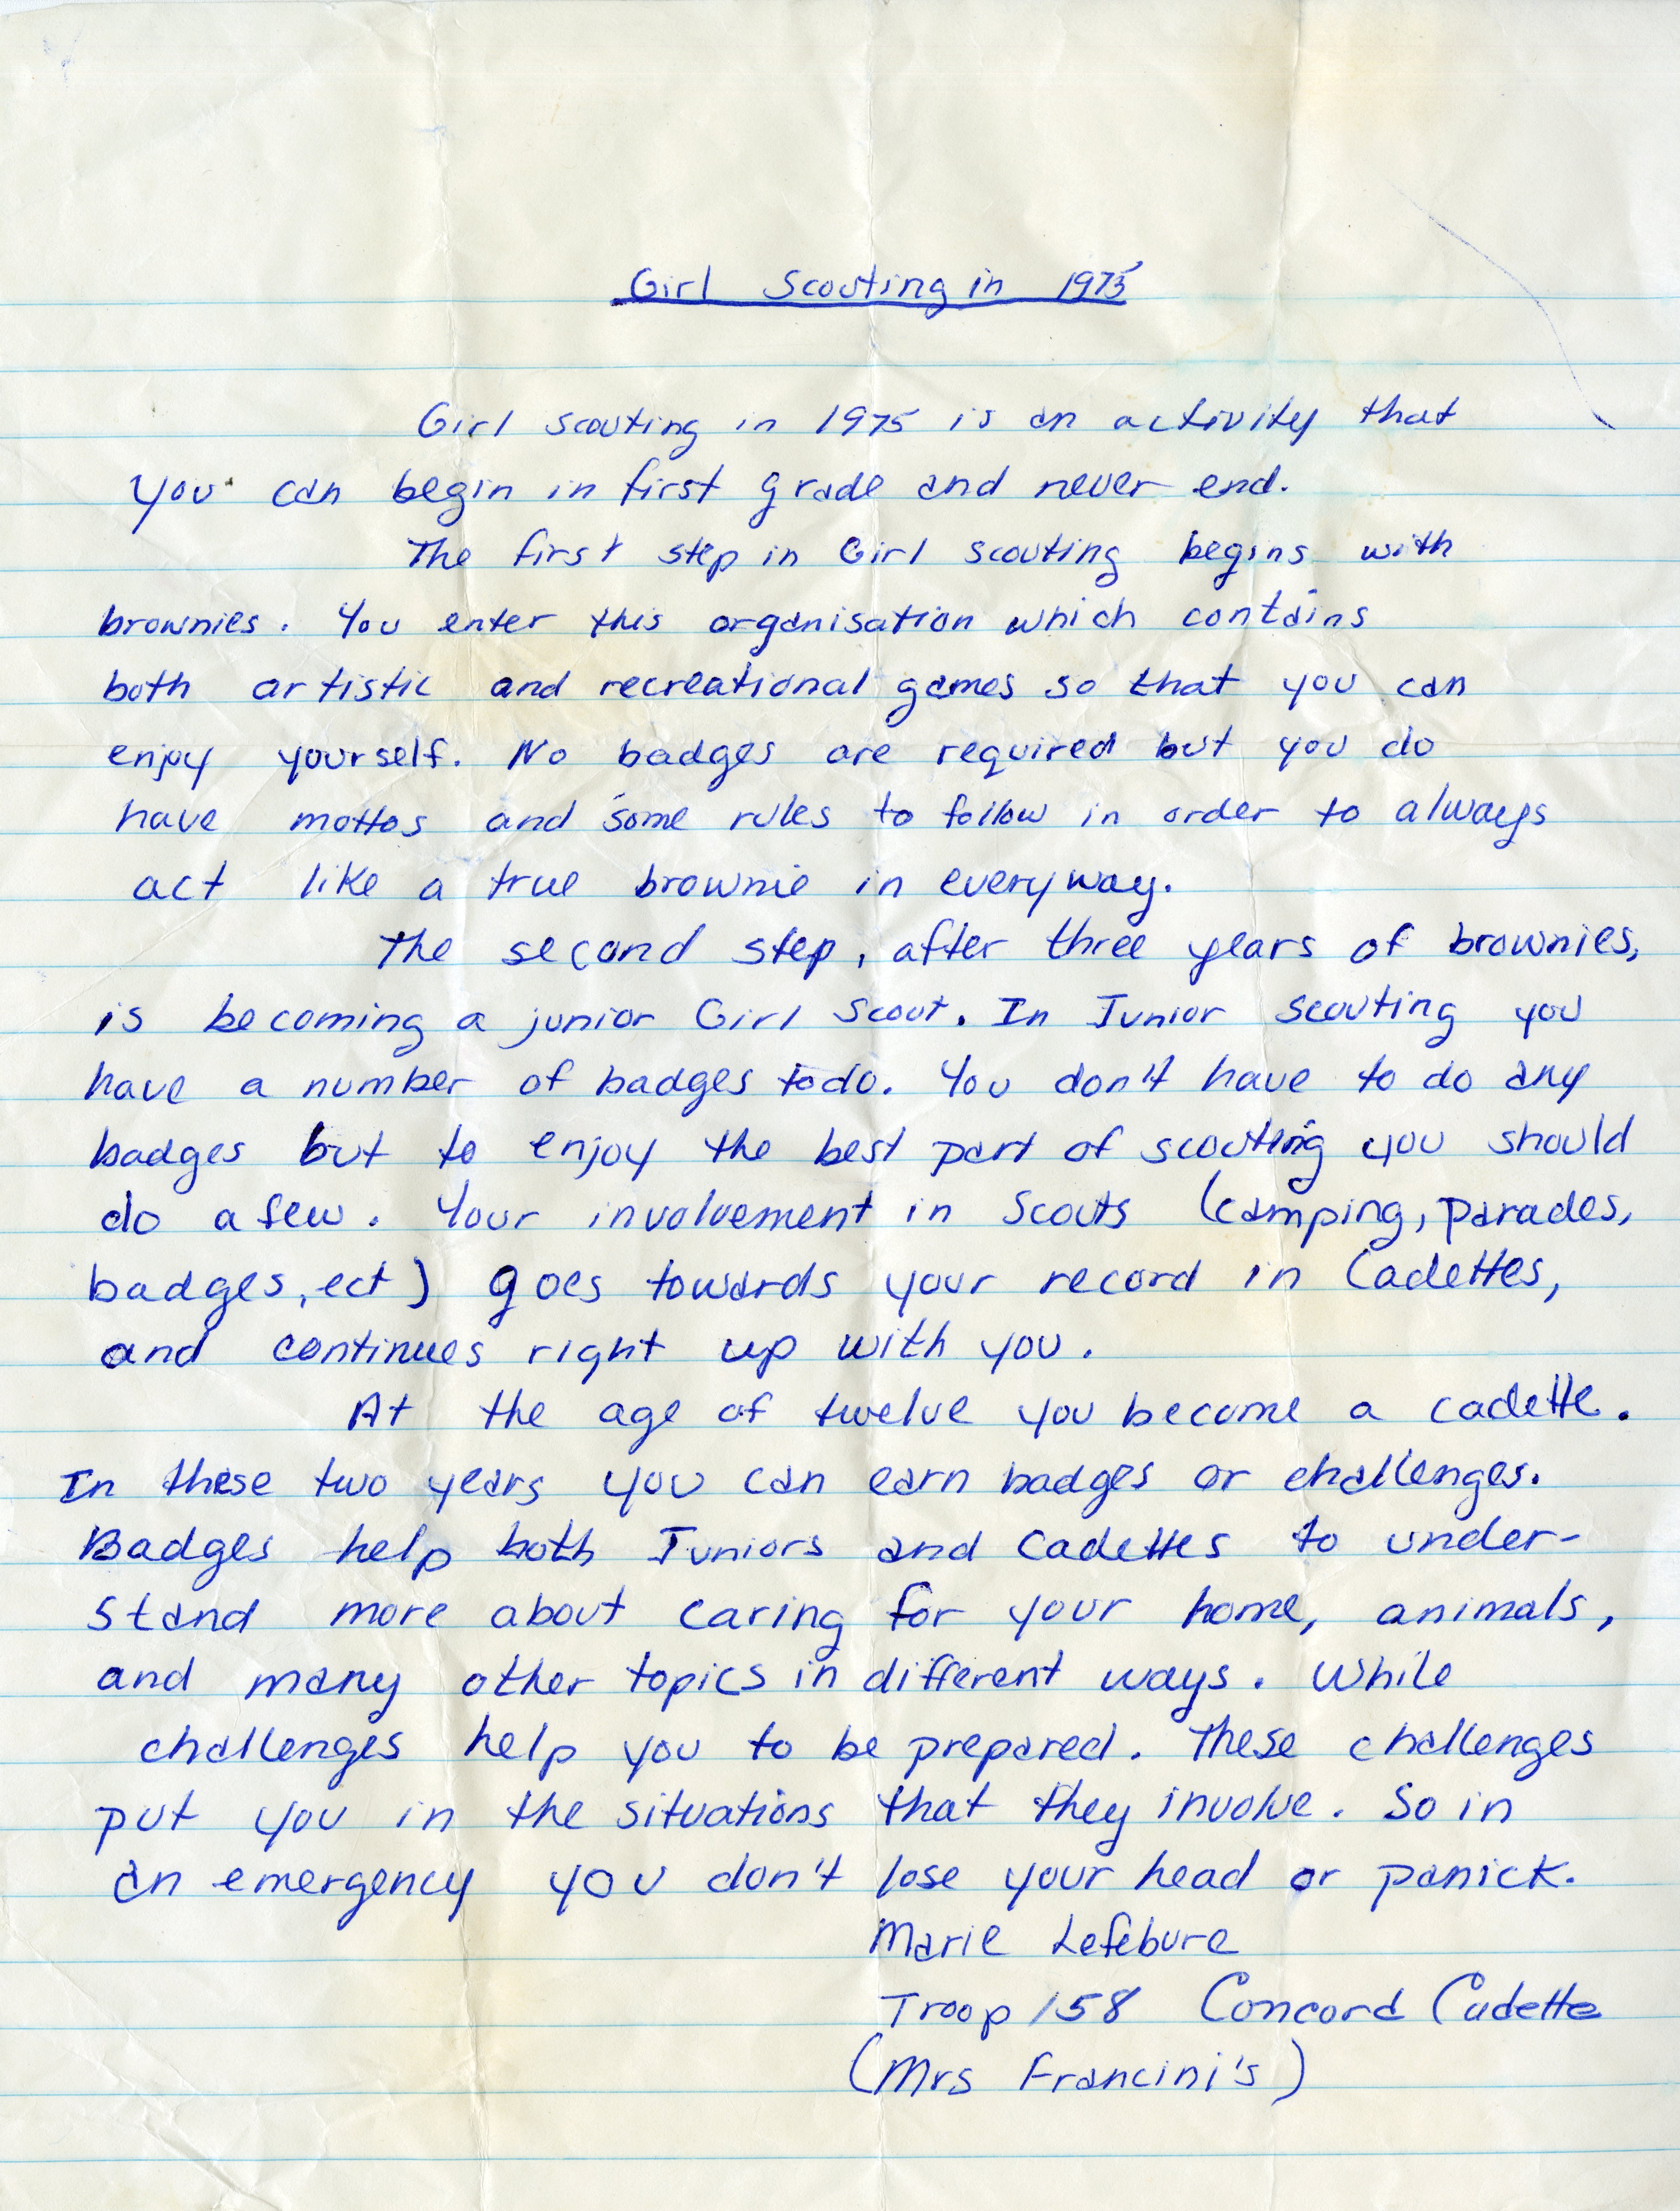 Girl Scouting in 1975
Girl scouting in 1975 is an activity that
you can begin in first grade and never end.
The first step in Girl scouting begins with
brownies. You enter this organisation which contains
both artistic and recreational games so that you can
enjoy yourself. No badges are required but you do
have mottos and some rules to follow in order to always
act like a true brownie in everyway.
The second step, after three years of brownies,
is becoming a junior Girl Scout. In Junior scouting you
have a number of badges to do. You don't have to do any
badges but to enjoy the best part of scouting you should
do a few. Your involvement in Scouts (camping, parades,
badges, ect) goes towards your record in Cadettes,
and continues right up with you.
At the age of twelve you become a cadette.
In these two years you can earn badges or challenges.
Badges help both Juniors and Cadettes to under-
stand more about caring for your home, animals,
and many other topics in different ways. While
challenges help you to be prepared. These challenges
put you in the situations that they involve. So in
an emergency you don't lose your head or panick.
Marie Lefebure
Troop 158 Concord Cadette
(Mrs Francini's)